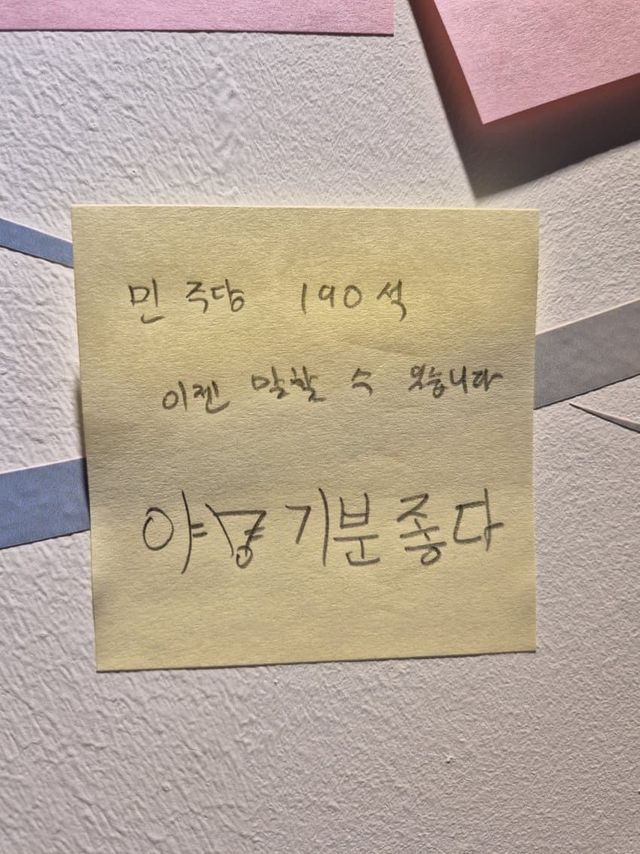 민주당 190석
이젠 말할 수 있습니다
야 기분좋다